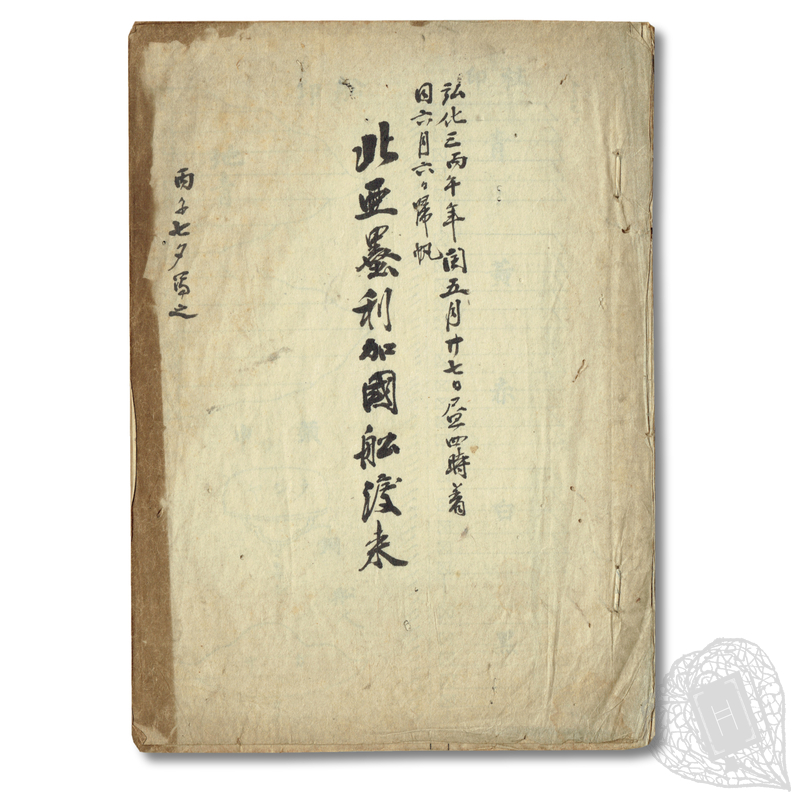 弘化三丙午年閏五月廿七日昼四時着
同六月六日帰帆
北亜墨利加國舩渡来
丙子七夕写之
H